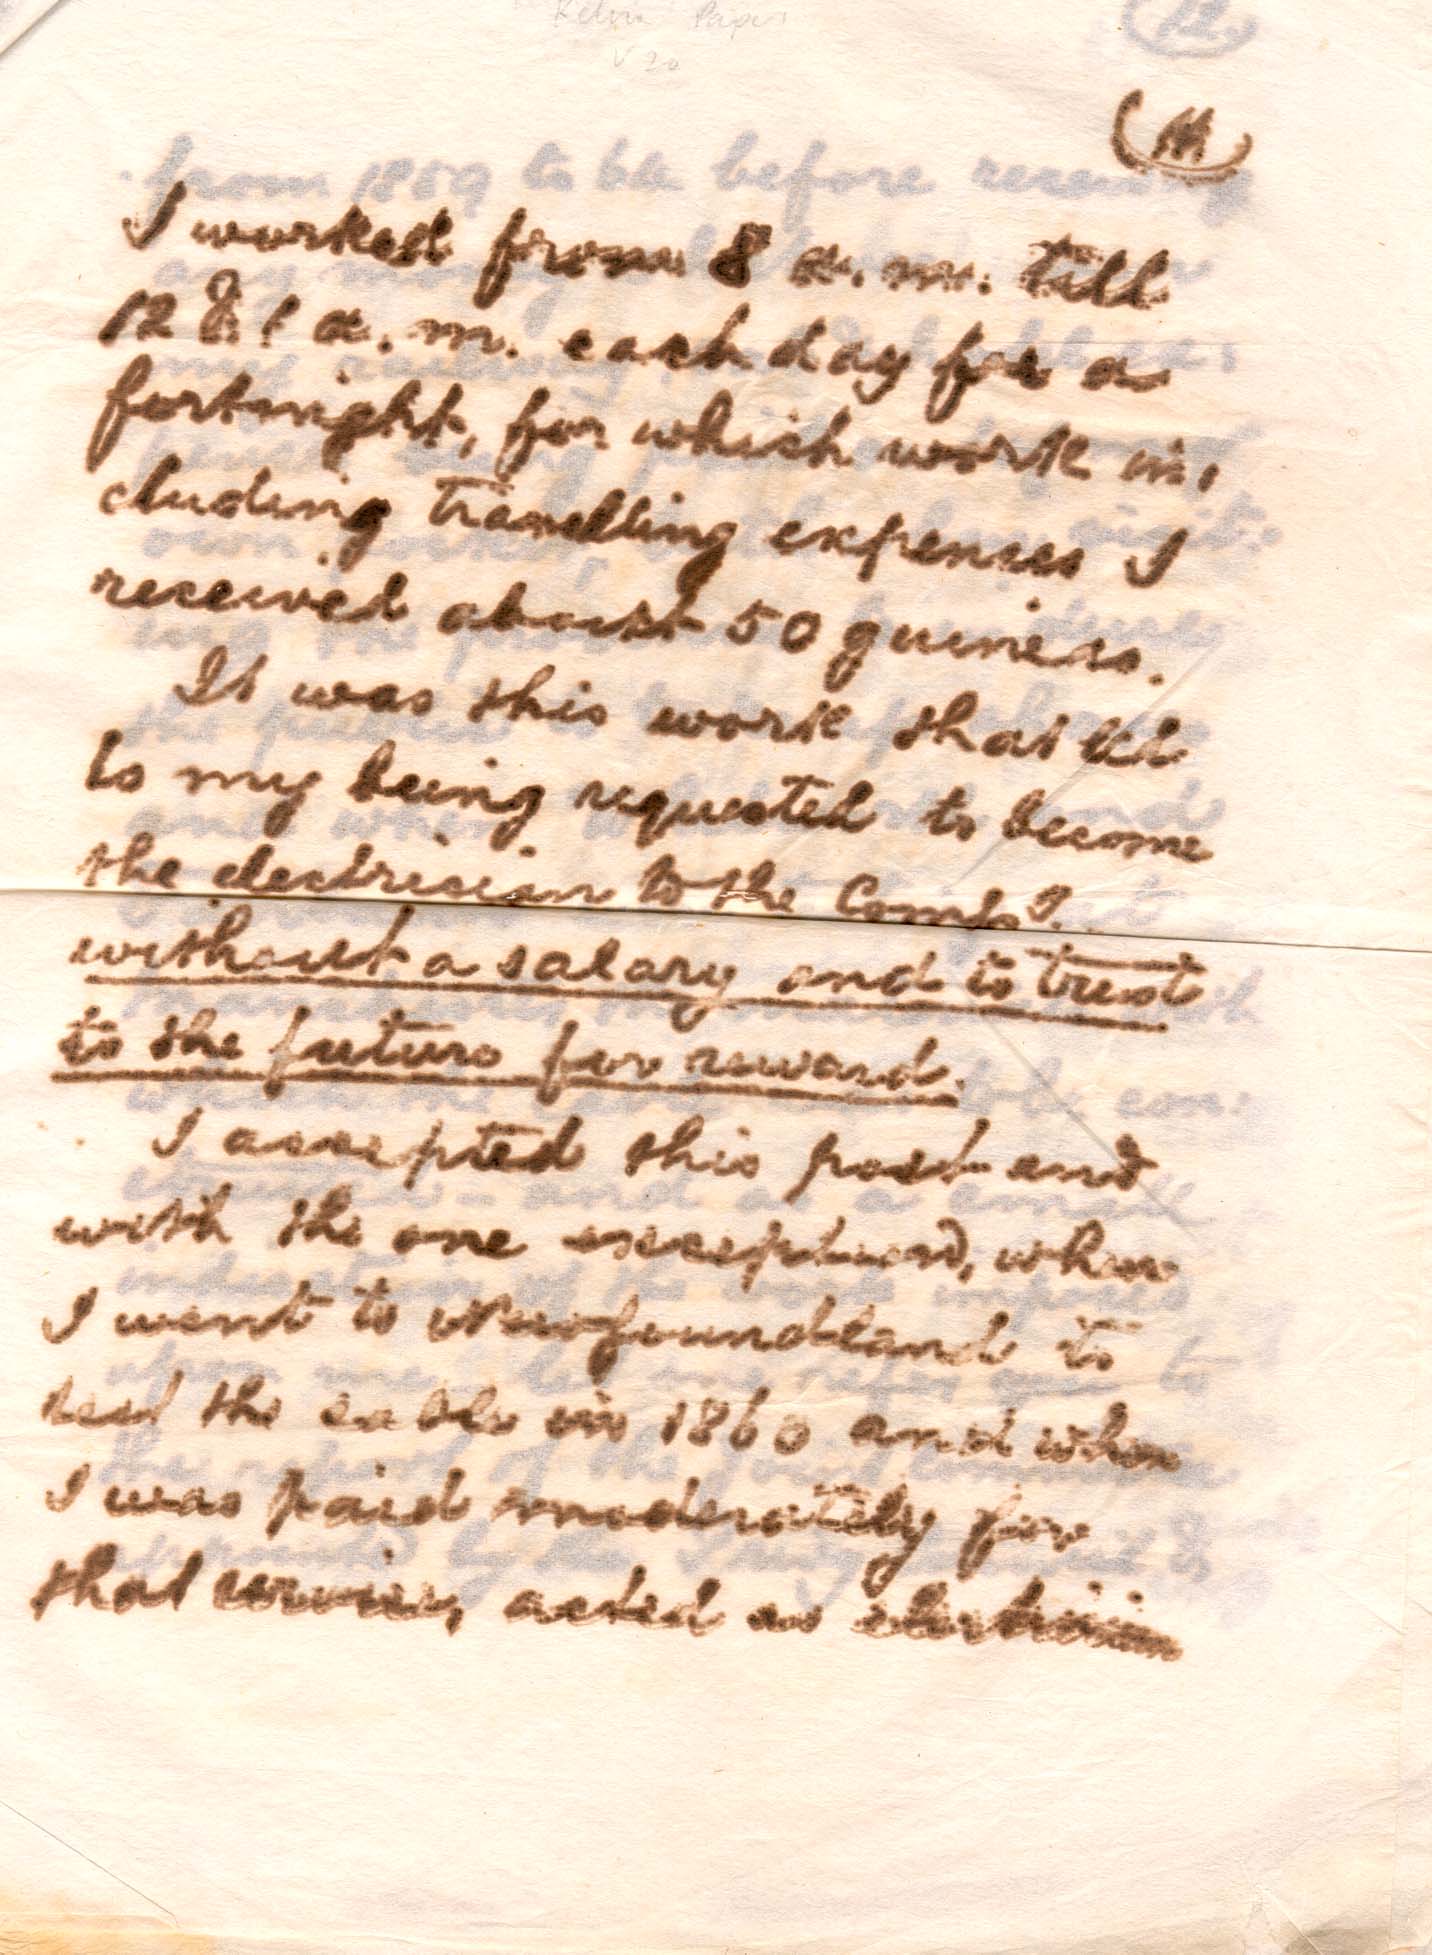 Kelvin Papers
V 20
(11)
I worked from 8 a.m. till
12 & 1 a.m. each day for a
fortnight, for which work in:
cluding travelling expenses I
received about 50 guineas.
It was this work that led
to my being requested to become
the electrician to the
without a salary and to trust
to the future for reward.
I accepted this post and
with the one exception, when
I went to Newfoundland to
test the cable in 1860 and when
I was paid moderately for
that service, acted as electrician